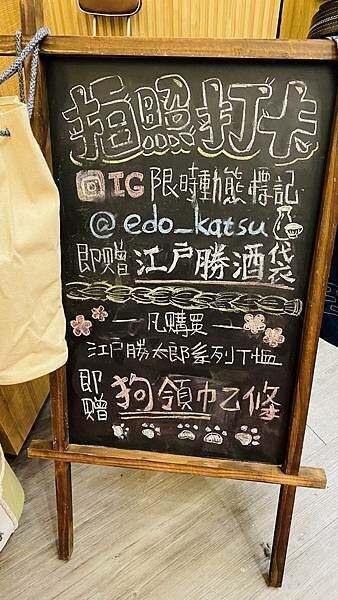 拍照打卡
IG 限時動態標記
@edo_katsu
即贈 江戶勝酒袋
凡購買
江戶勝太郎系列T恤
即贈 狗領巾乙條